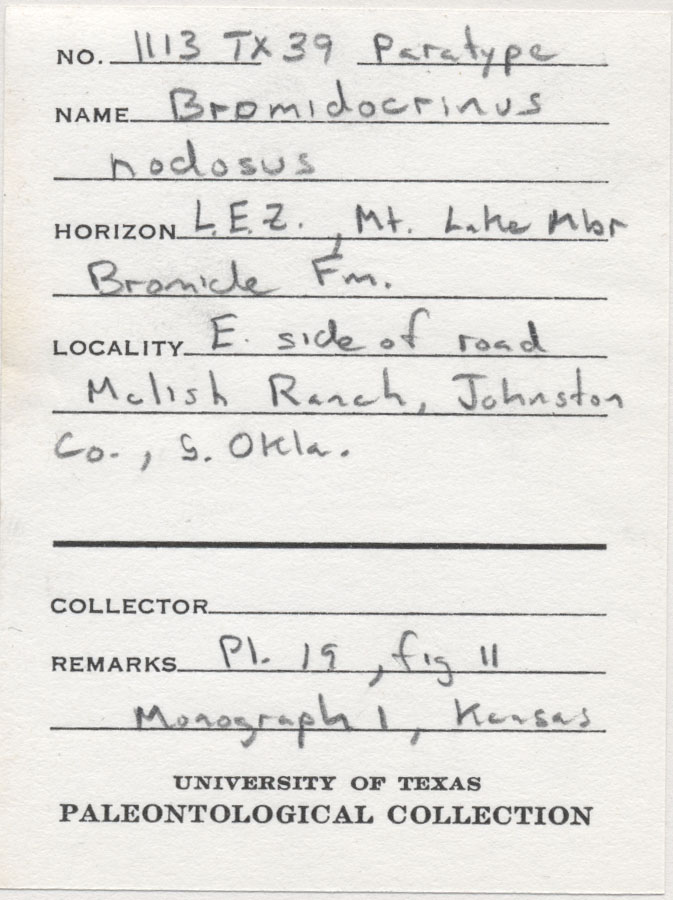 NO. 1113 TX 39 Paratype
NAME Bromidocrinus
nodosus
HORIZON L.E.Z., Mt. Lake Mbr
Bromide Fm.
LOCALITY E. side of road
Mclish Ranch, Johnston
Co., S. Okla.
COLLECTOR
REMARKS Pl. 19, fig 11
Monograph 1, Kansas
UNIVERSITY OF TEXAS
PALEONTOLOGICAL COLLECTION